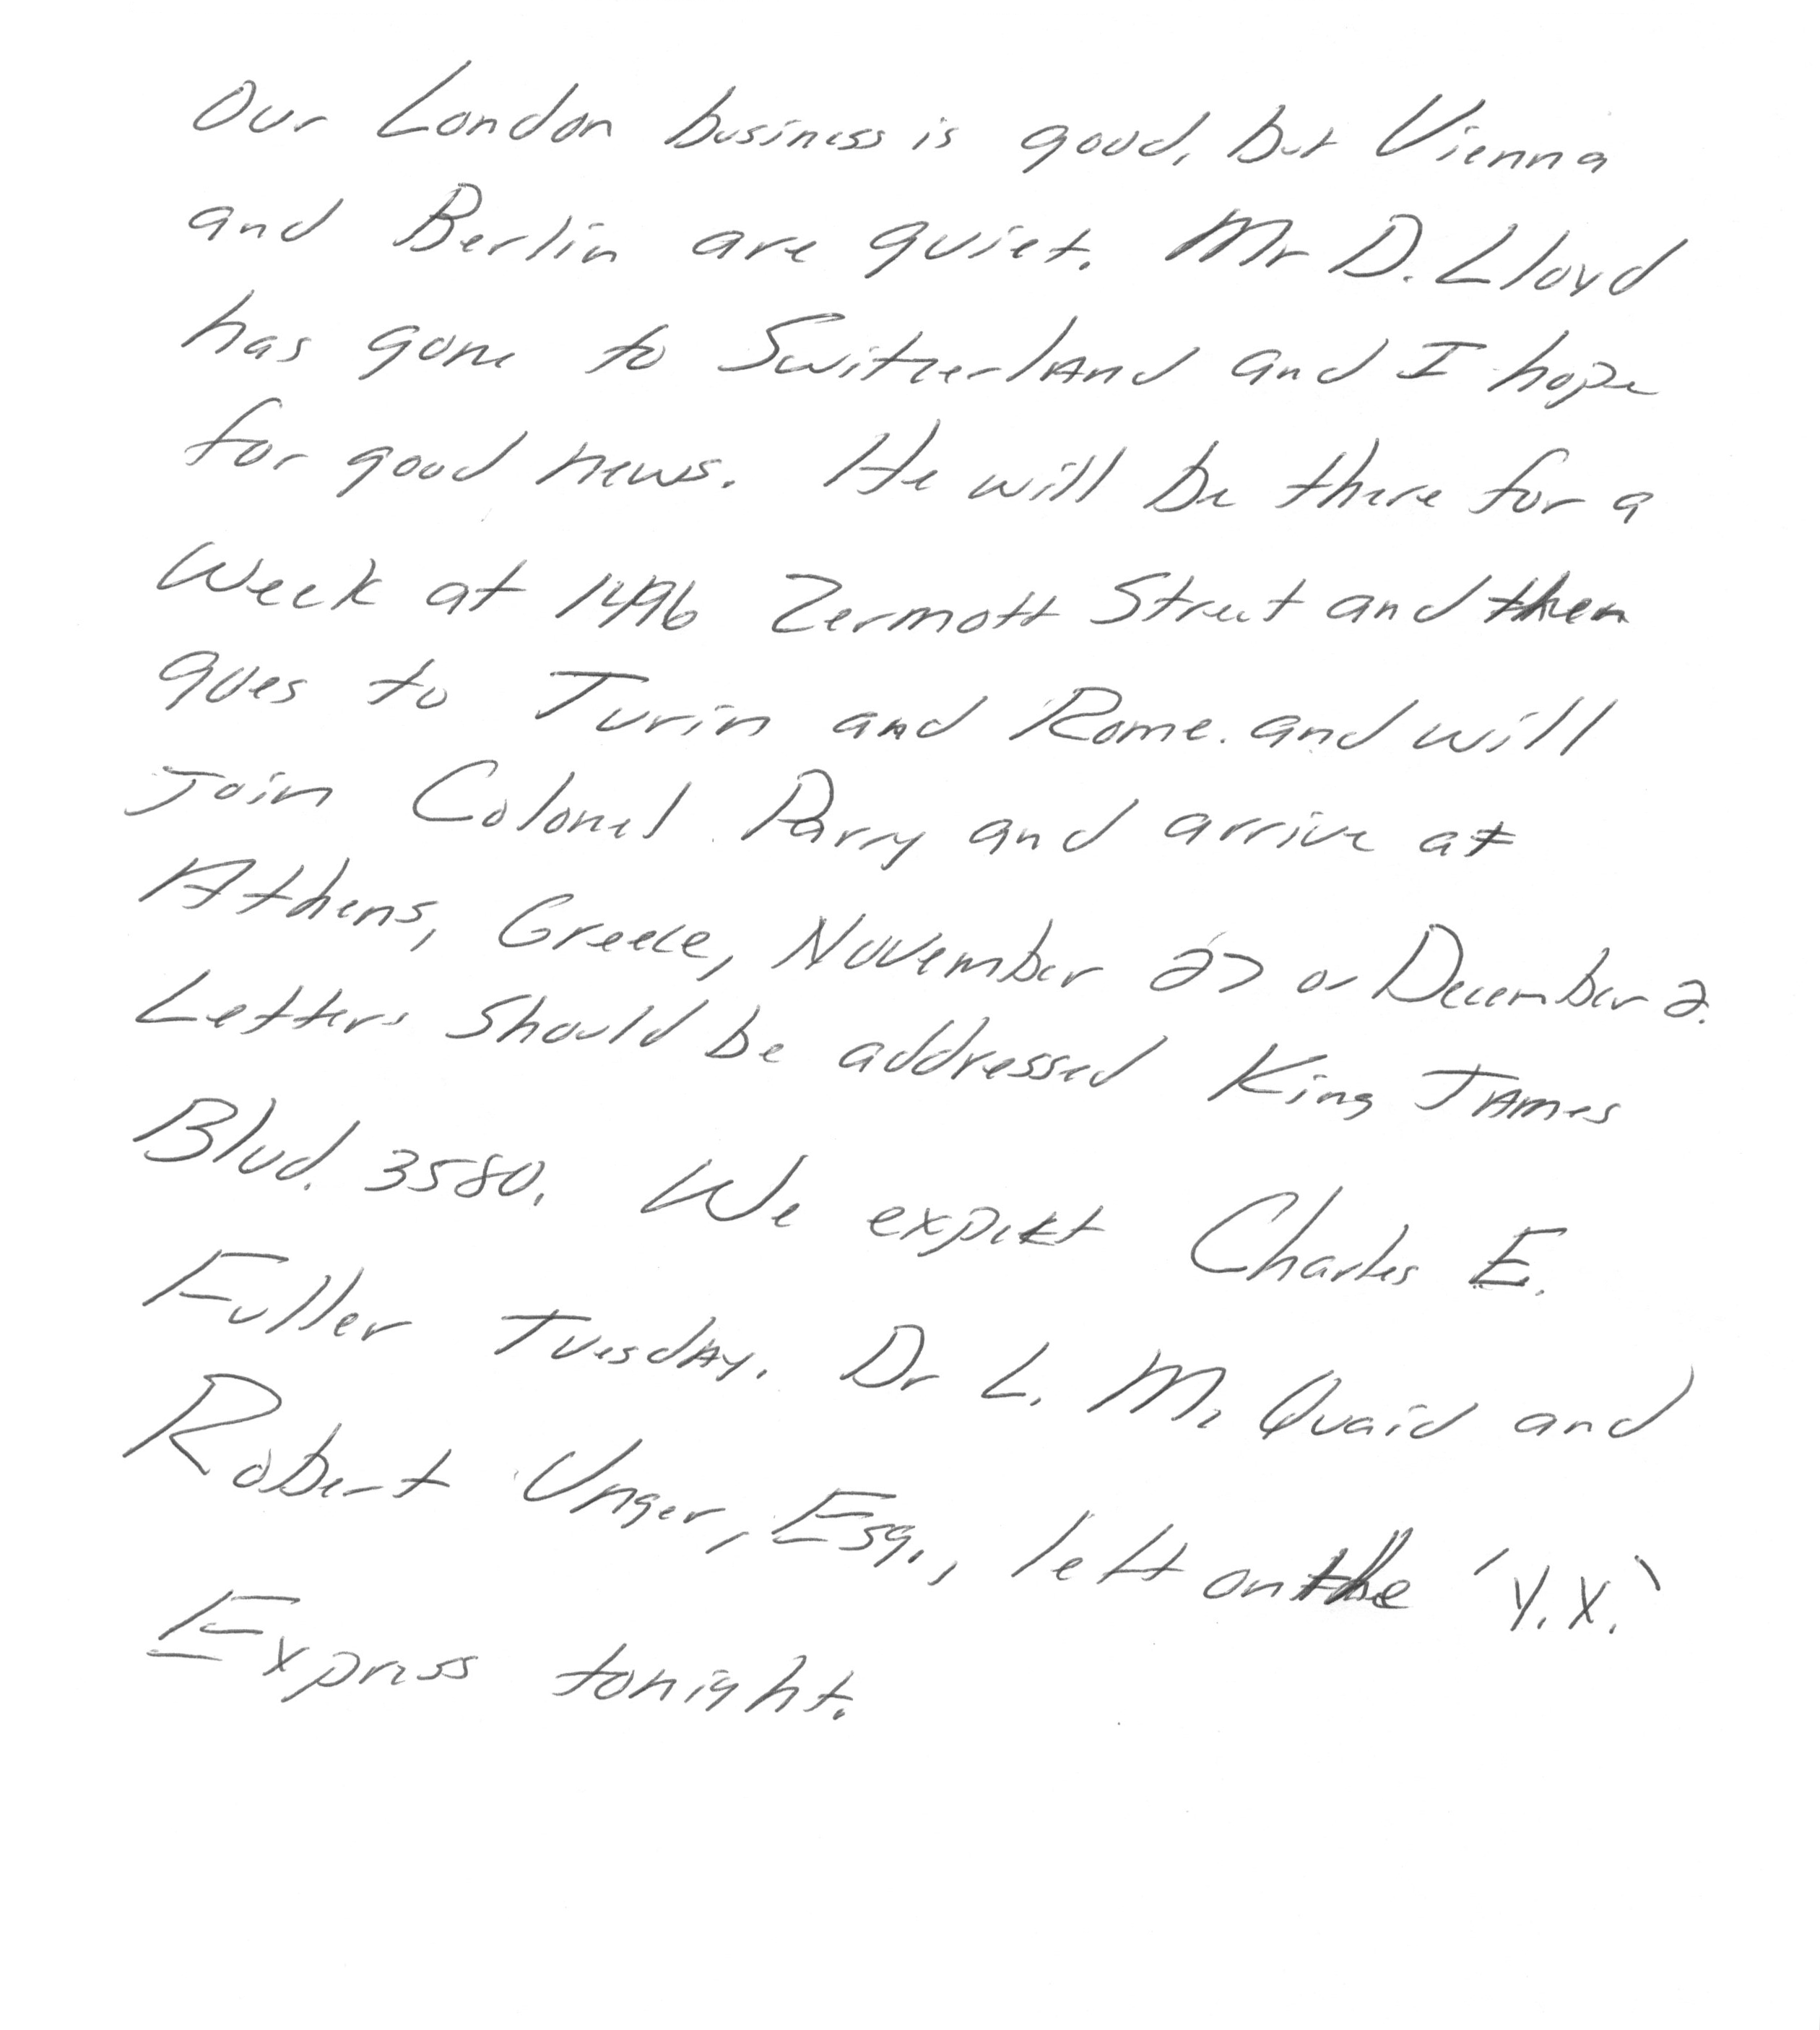 Our London business is good, but Vienna
and Berlin are quiet. Mr D. Lloyd
has gone to Switzerland and I hope
for good news. He will be there for a
Week at 1496 Zermott Street and then
goes to Turin and Rome. and will
Join Colonel Parry and arrive at
Athens, Greece, November 27 or December 2.
Letters Should be addressed King James
Blvd. 3580. We expect Charles E.
Fuller Tuesday. Dr L. M. Quaid and
Robert Unger, Esq., left on the 'Y.X.'
Express tonight.